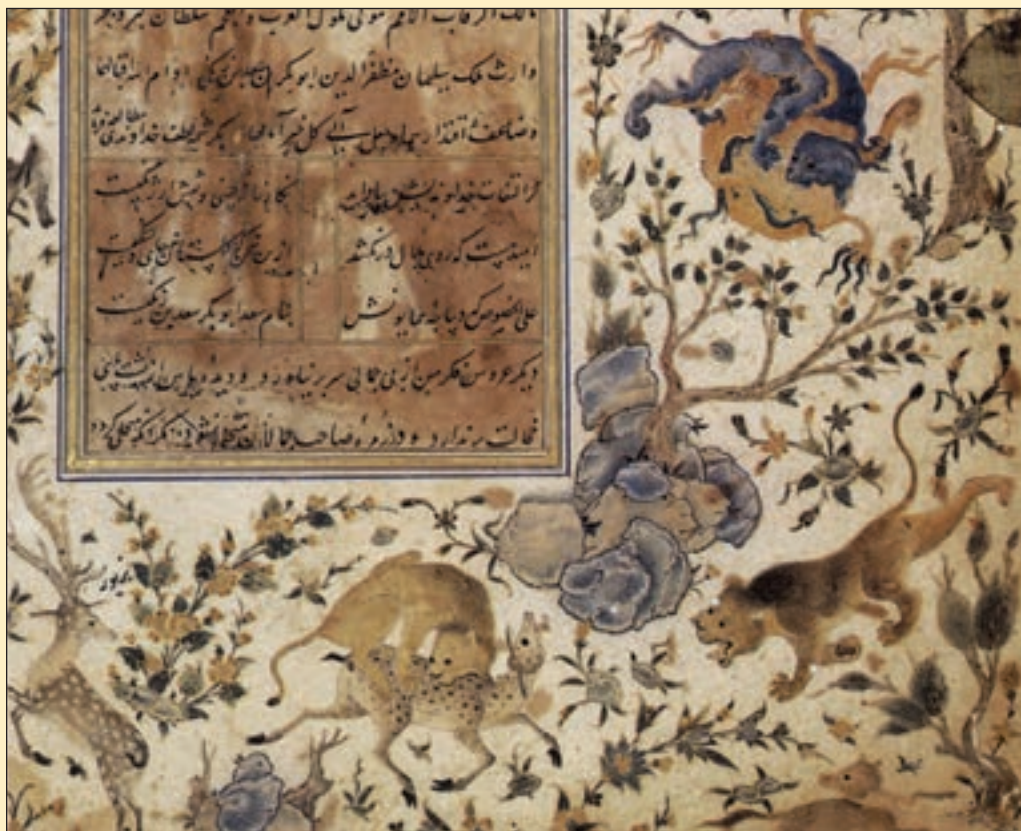 مالک الرقاب الامم مولی ملوک العرب و العجم سلطان البر و البحر
وارث ملک سلیمان مظفر الدین ابوبکر بن سعد بن زنگی ادام الله اقبالهما
و ضاعف اقتدارهما و جعل الی کل خیر مآلهما بکرشمه لطف خداوندی مطالعه
گر التفات خداوندیش بیاراید نگارخانه چینی و نقش ارژنگیست
امید هست که روی ملال در نکشد ازین سخن که گلستان نه جای دلتنگیست
علی الخصوص که دیباچه همایونش بنام سعد ابوبکر سعد بن زنگیست
دیگر عروس فکر من از بی جمالی سر بر نیارد و دیده یاس از پشت پای
خجالت بر ندارد و در زمره صاحب جمالان مگر آنگه که متحلی گردد
بزیور